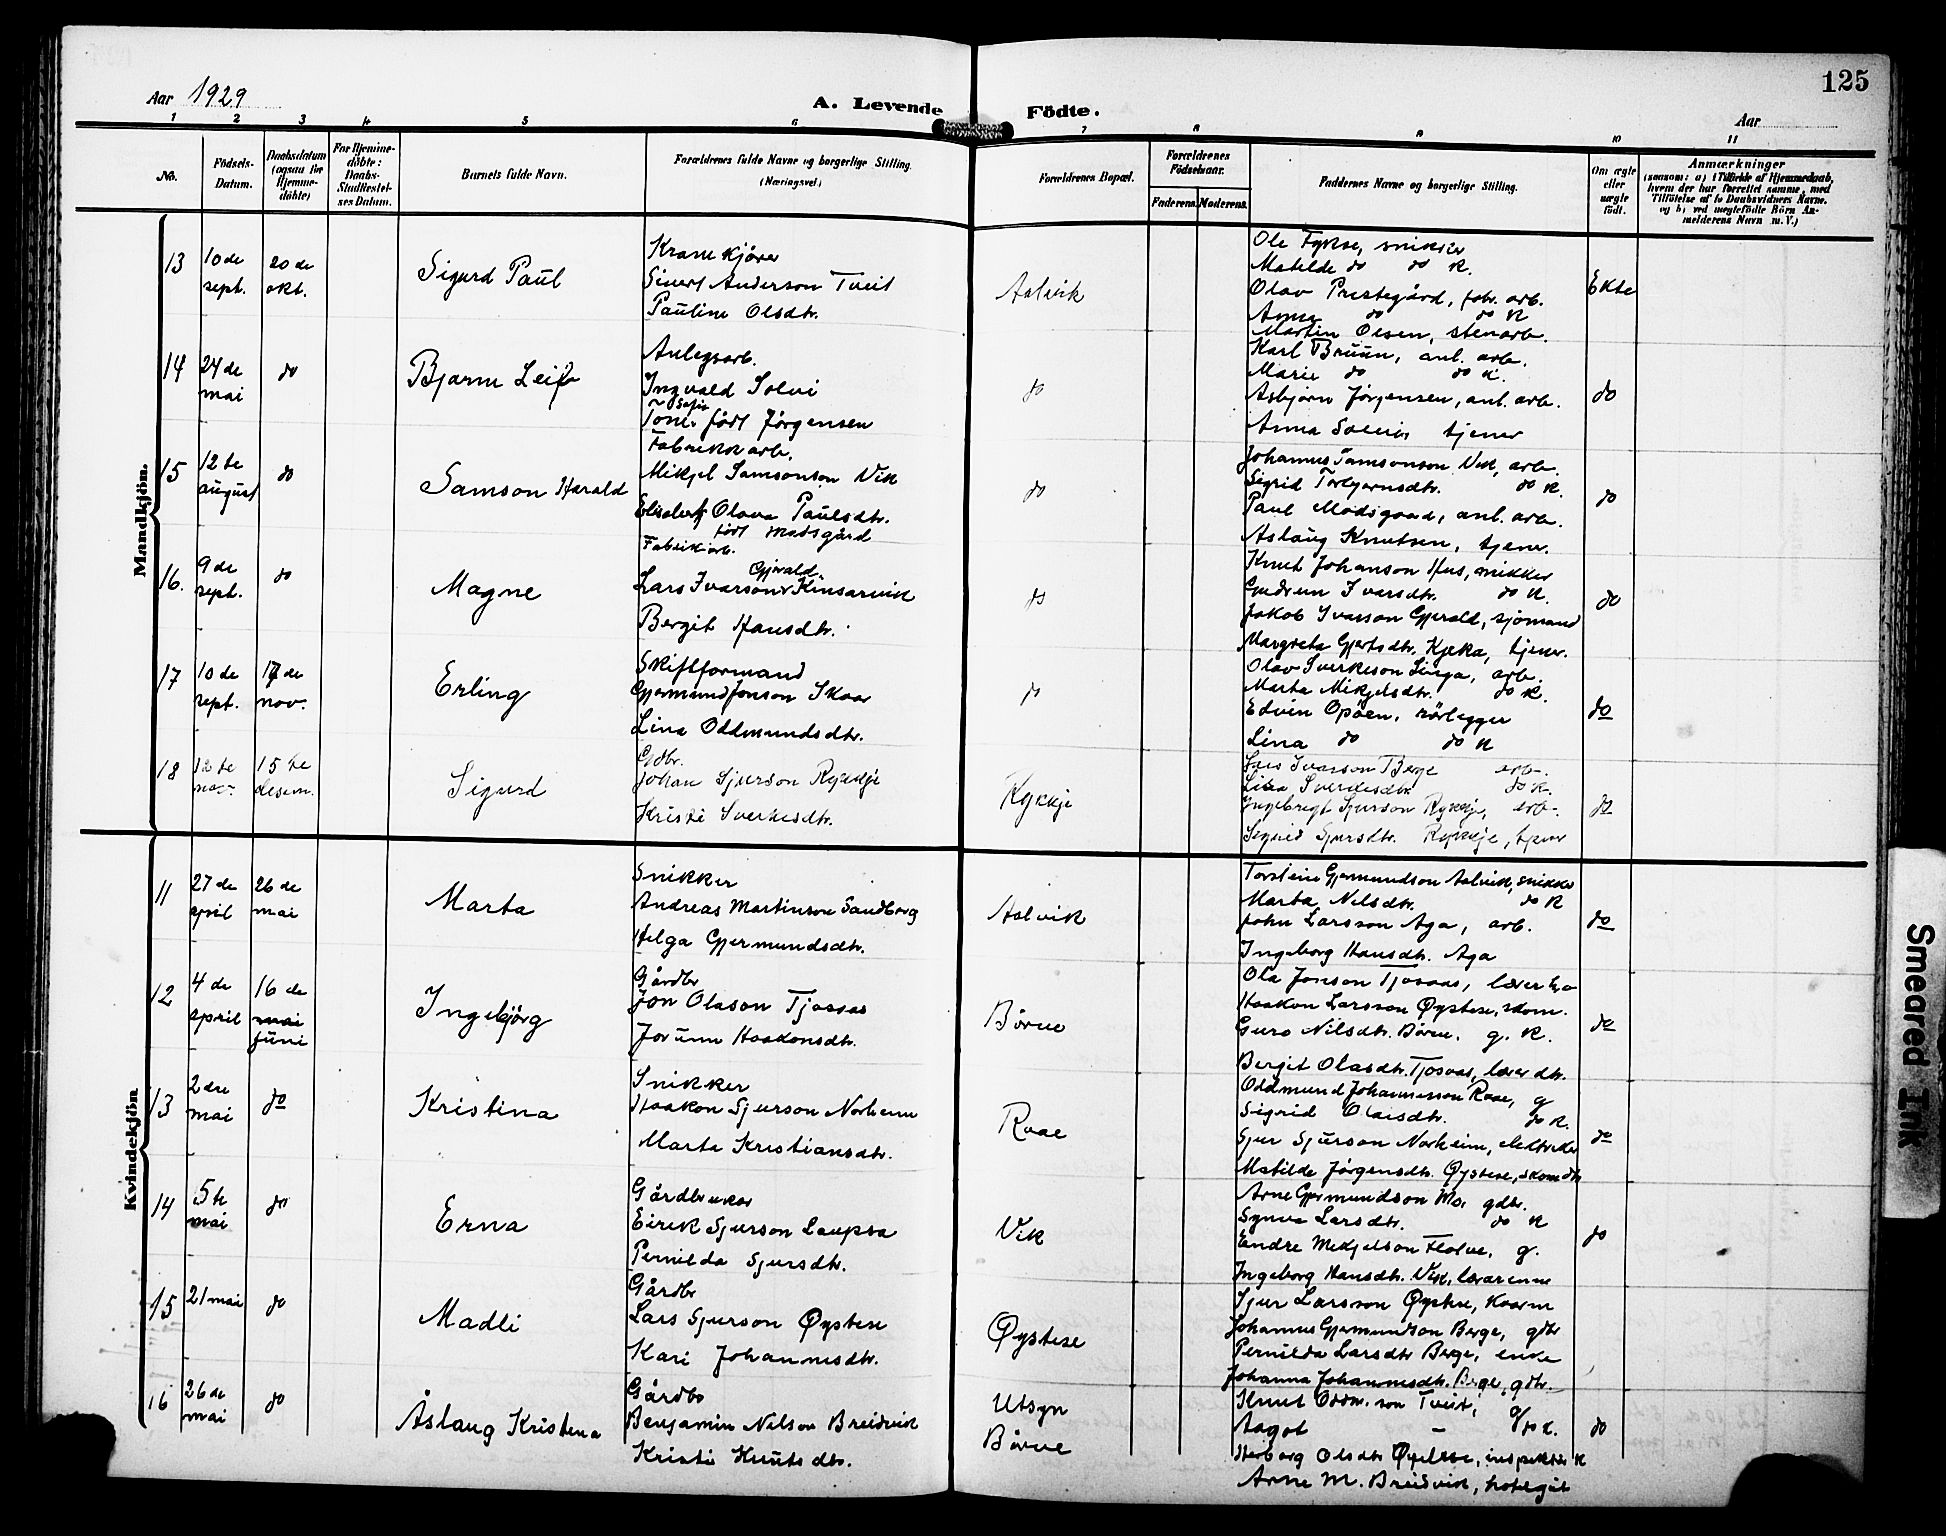 125
Aar 1929
A. Levende
Födte.
Aar
1 2 3 4 5 6 7 8 9 10 11
No.
Födsels-
Datum.
Daabsdatum
(ogsaa for
Hjemme-
döbte)
For Hjemme-
döbte:
Daabs-
Stadfæstel-
ses Datum.
Barnets fulde Navn.
Forældrenes fulde Navne og borgerlige Stilling.
(Næringsvei.)
Forældrenes Bopæl.
Forældrenes
Födselsaar.
Faderens.
Moderens.
Faddernes Navne og borgerlige Stilling.
Om ægte
eller
uægte
födt.
Anmærkninger
(saasom: a) i Tilfælde af Hjemmedaab,
hvem der har forrettet samme, med
Tilföielse af to Daabsvidners Navne.
og b) ved uægtefödte Börn An-
melderens Navn m. V.)
Mandkjön.
13
10 de
sept.
20 de
okt.
Sigurd Paul
Krane kjörer
Sivert Anderson Tveit
Pauline Olsdtr.
Aalvik
Ole Fykse, snikker
Matilde do do K.
Olav Prestegård, fabr. arb.
Anna do do K
Martin Olsen, stenarb.
Ekte
14
24 de
mai
do
Bjarne Leif
Anlegsarb.
Ingvald Solvi
Sofie
Tone født Jørgensen
do
Karl Bruun, anl. arb.
Marie do do K.
Asbjørn Jørgensen, anl. arb.
Anna tjener
do
15
12 te
august
do
Samson Harald
Fabrikk arb.
Mikjel Samsonson Vik
Elisabeth Olava Paulsdtr.
født Modsgård
do
Johannes Samsonson Vik, arb.
Sigrid Torbjørnsdtr. do K.
Paul Modsgaard, anl. arb.
Aslaug Knutsen, tjener.
do
16.
9 de
sept.
do
Magne
Fabrikarb.
Gjerald
Lars Ivarson Kinsarvik
Bergit Hansdtr.
do
Knut Johanson Hus, snikker
Gudrun Ivarsdtr. do K.
Jakob Ivarson Gjerald, sjömand
Margreta Gjertsdtr. tjener.
do
17
10 de
sept.
17 de
nov.
Erling
Skiftformand
Gjermund Jonson Skaar
Lina Oddmundsdtr.
do
Olav Sverkeson arb.
Marta Mikjelsdtr. do K.
Edvin Opöen, rörlegger
Lina do do K
do
18
12 te
nov.
15 de
desem.
Sigurd
Gdbr.
Johan Sjurson Rykkje
Kristi Sverkesdtr.
Rykkje
Lars Ivarson Berge arb.
Lisa Sverkesdtr. do K.
Ingebregt Sjurson Rykkje, arb.
Sigrid Sjursdtr. Rykkje, tjener
do
Kvindekjön
11
27 de
april
26 de
mai
Marta
Snikker
Andreas Martinson Sandborg
Helga Gjermundsdtr.
Aalvik
Torstein Gjermundson Aalvik, snikker
Marta Nilsdtr. do K
John Larsson Aga, arb.
Ingeborg Hansdtr. Aga
do
12
4 de
april
16 de
mai
juni
Ingebjörg
Gårdbr
Jon Olason Tjosaas
Jorunn Haakonsdtr.
Börve
Ola Jonson Tjosaas,
Haakon Larsson Øystese, skom.
Guro Nilsdtr. Börve. g. K.
Bergit Olasdtr. Tjosaas, lærer dtr.
do
13
2 dre
mai
do
Kristina
Snikker
Haakon Sjurson Norheim
Marta Kristiansdtr.
Raae
Oddmund Johannesson Raae, g
Sigrid Olaisdtr. do K.
Sjur Sjurson Norheim,
Matilde Jörgensdtr. Øystese, skom dtr
do
14
5 te
mai
do
Erna
Gårdbruker
Eirik Sjurson Laupsa
Pernilda Sjursdtr.
Vik
Arne Gjermundson Mo, gdbr.
Synva Larsdtr. do K
Endre Mikjelson Flotve, g.
Ingeborg Hansdtr. Vik, lærarinne
do
15
21 mai
do
Madli
Gårdbr
Lars Sjurson Øystese
Kari Johannesdtr.
Øystese
Sjur Larsson Øystese,
Johannes Gjermundson Berge, gdbr
Pernilda Larsdtr Berge, enke
Johanna Johannesdtr. Berge, gdtr.
16
26 de
mai
do
Åslaug Kristina
Gårdbr
Benjamin Nilson Breidvik
Kristi Knutsdtr.
Utsyn
Börve
Knut Oddm. son Tveit, g
Aagot - do K.
Herborg Olsdtr Øystese, K
Arne M. Breidvik,
do
Smeared Ink